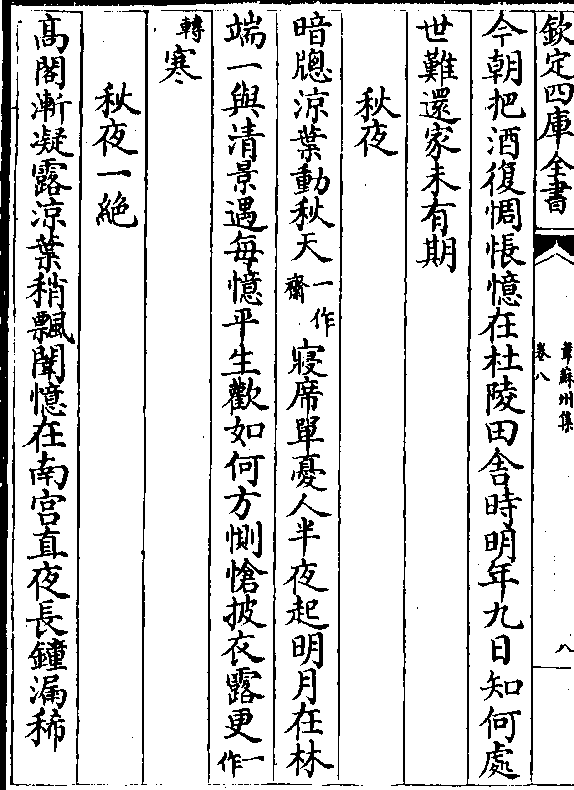 欽定四庫全書
韋蘇州集
卷八
八
今朝把酒復惆悵憶在杜陵田舍時明年九日知何處
世難還家未有期
秋夜
暗牕涼葉動秋天一作齋寢席單憂人半夜起明月在林
端一與清景遇每憶平生歡如何方惻愴披衣露更一作
轉寒
秋夜一絶
高閣漸凝露涼葉稍飄闈憶在南宫直夜長鐘漏稀